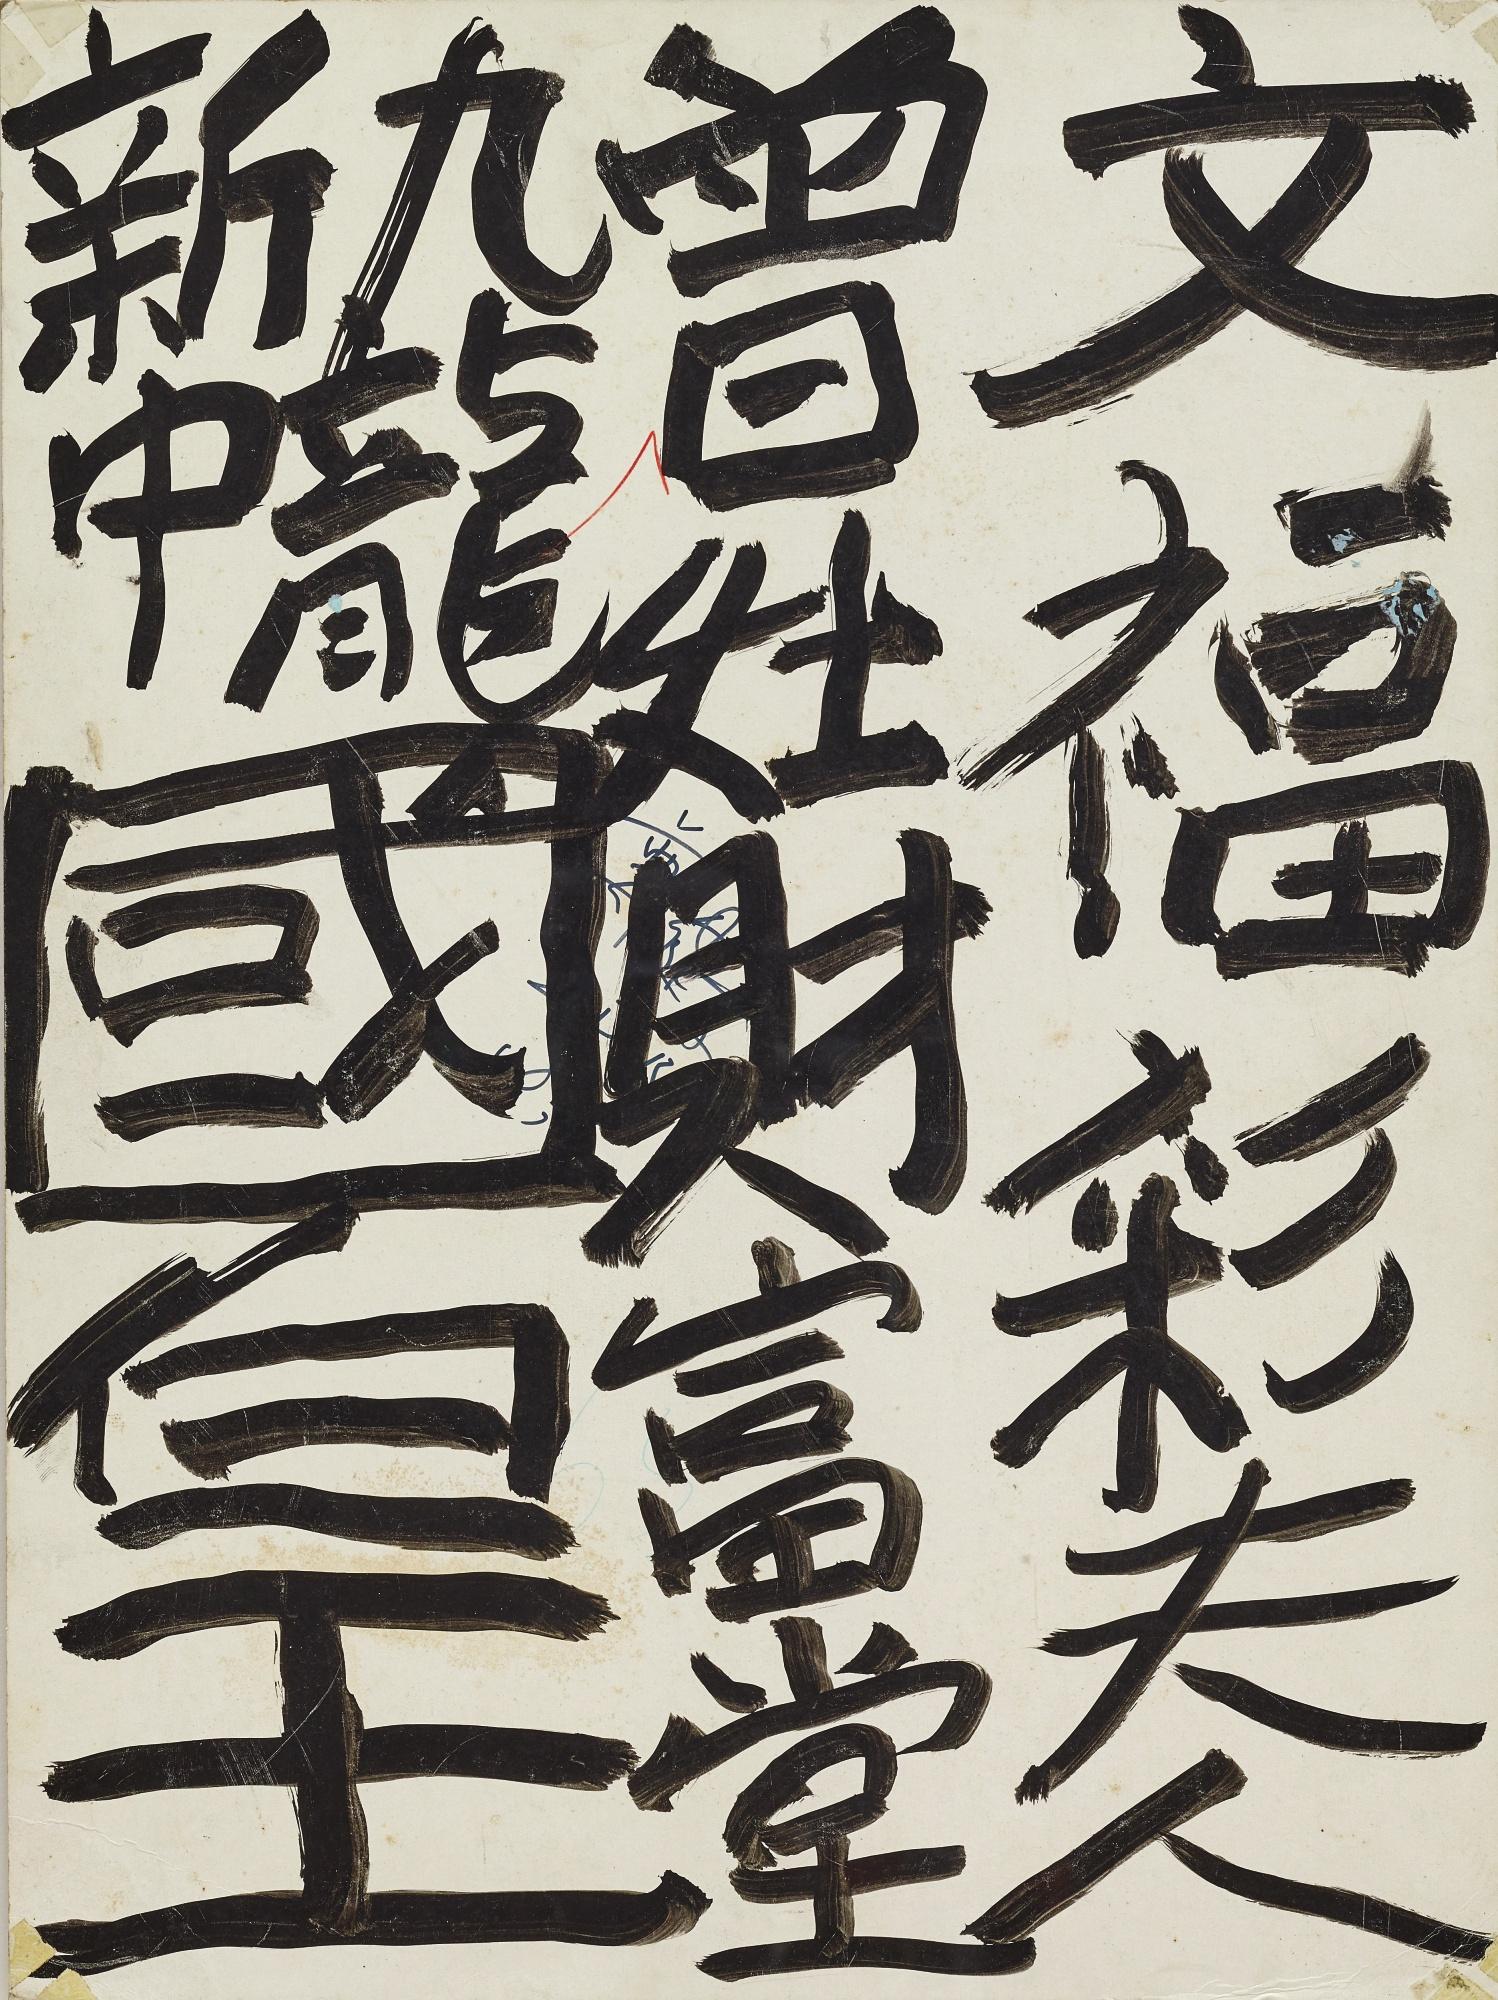 文福彩夫人
曾姓財富堂
九龍
新中
國皇